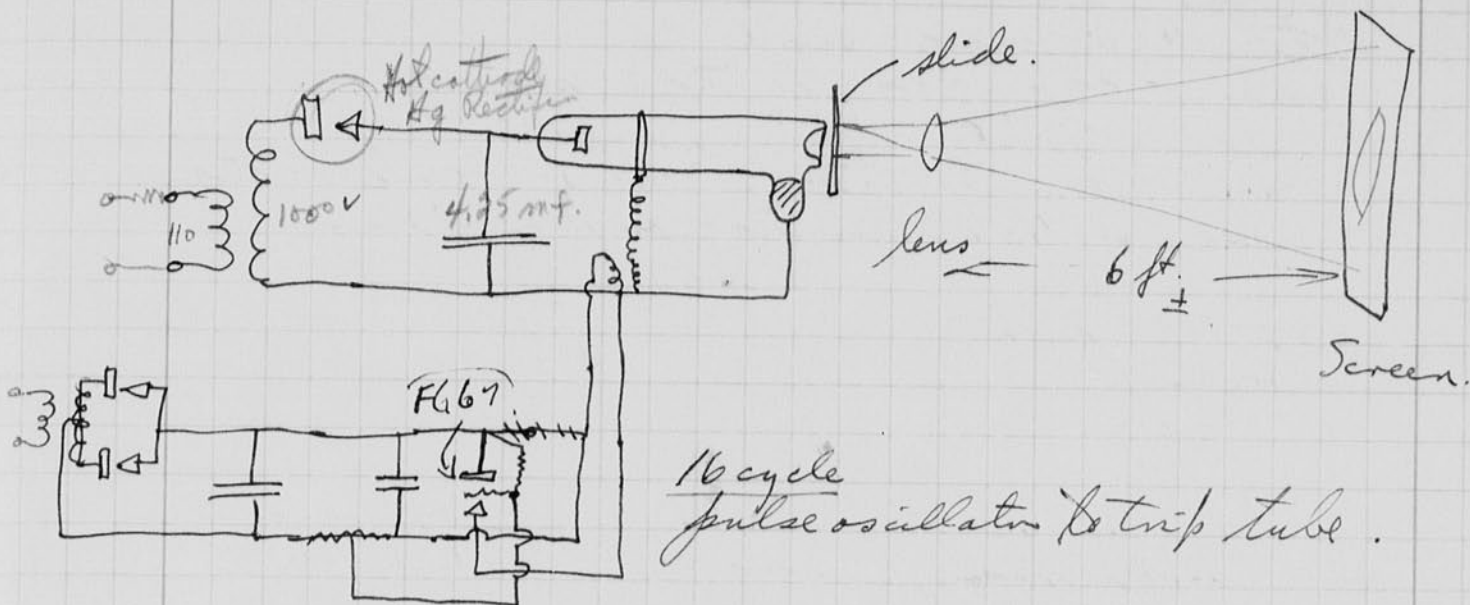 slide.
Hot cathode
Hg Rectifier
110
1000 V
4.25 mf.
lens
6 ft. ±
Screen.
FG 67
16 cycle
pulse oscillator to trip tube.